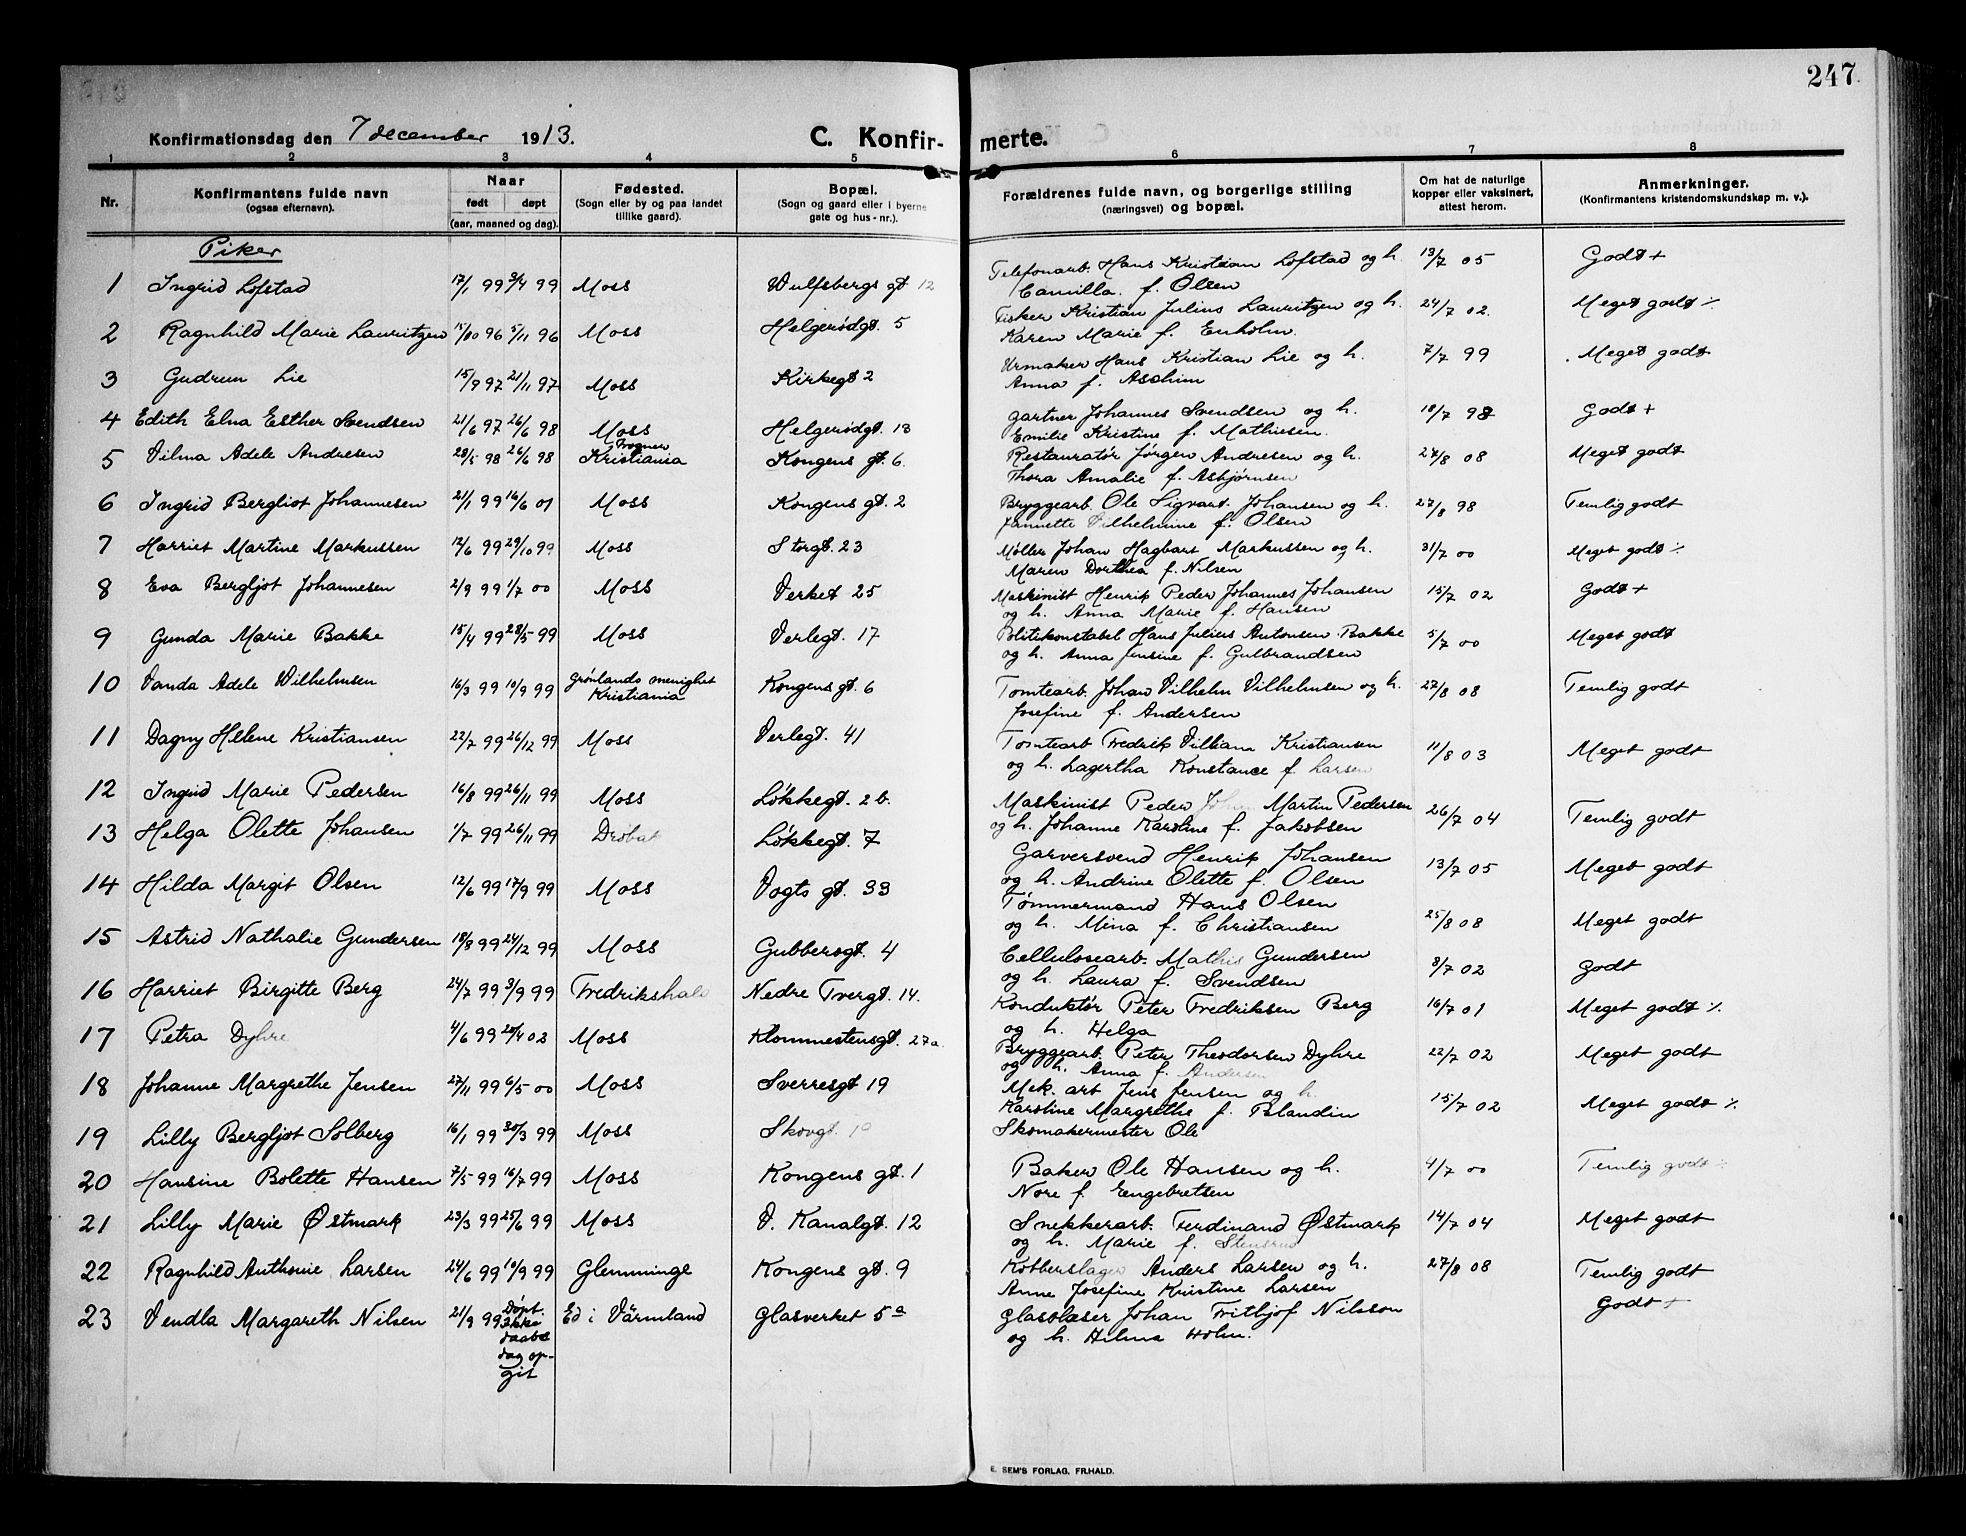 247.
Konfirmationsdag den 7 december 1913.
C. Konfirmerte.
1 2 3 4 5 6 7 8
Nr.
Konfirmantens fulde navn
(ogsaa efternavn).
Naar
født døpt
(aar, maaned og dag).
Fødested.
(Sogn eller by og paa landet
tillike gaard).
Bopæl.
(Sogn og gaard eller i byerne
gate og hus-nr.).
Forældrenes fulde navn, og borgerlige stilling
(næringsvei) og bopæl.
Om hat de naturlige
kopper eller vaksinert,
attest herom.
Anmerkninger.
(Konfirmantens kristendomskundskap m. v.).
Piker
1 Ingrid Løfstad 17/1 99 3/4 99 Moss Wulfsbergs gt 12 Telefonarb. Hans Kristian Løfstad og h. 13/7 05 Godt +
Camilla f. Olsen
2 Ragnhild Marie Lauritzen 15/10 96 5/11 96 Moss Helgerødgt. 5 Fisker Kristian Julius Lauritzen og h. 24/7 02. Meget godt ·/.
Karen Marie f. Enholm.
3 Gudrun Lie 15/9 97 21/11 97 Moss Kirkegt 2 Urmaker Hans Kristian Lie og h. 7/7 99 Meget godt
Anna f. Aschim
4 Edith Elna Esther Svendsen 21/6 97 26/6 98 Moss Helgerødgt. 13 gartner Johannes Svendsen og h. 18/7 98 Godt +
Emilie Kristine f. Mathiesen.
5 Vilma Adele Andresen 28/5 98 26/6 98 Frogner Kristiania Kongens gt. 6. Restauratør Jørgen Andresen og h. 27/8 08 Meget godt
Thora Amalie f. Asbjørnsen
6 Ingrid Bergliot Johannesen 21/1 99 16/6 01 Moss Kongens gt. 2 Bryggearb. Ole Sigvart Johansen og h. 27/8 98 Temlig godt
Jannette Vilhelmine f. Olsen
7 Harriet Martine Markussen 12/6 99 29/10 99 Moss Storgt. 23 Møller Johan Hagbart Markussen og h. 31/7 00 Meget godt ·/.
Maren Dorthea f. Nilsen
8 Eva Bergljot Johannesen 2/9 99 1/7 00 Moss Verket 25 Maskinist Henrik Peder Johannes Johansen 15/7 02 Godt +
og h. Anna Marie f. Hansen
9 Gunda Marie Bakke 15/4 99 28/5 99 Moss Verlegt. 17 Politikonstabel Hans Julius Antonsen Bakke 5/7 00 Meget godt
og h. Anna Jensine f. Gulbrandsen
10 Vanda Adele Wilhelmsen 16/3 99 10/9 99 Grønlands menighet Kristiania Kongens gt. 6 Tomtearb. Johan Vilhelm Vilhelmsen og h. 27/8 08 Temlig godt
Josefine f. Andersen
11 Dagny Helene Kristiansen 22/7 99 26/12 99 Moss Verlegt. 41 Tomtearb Fredrik Villiam Kristiansen 11/8 03 Meget godt
og h. Lagertha Konstance f. Larsen
12 Ingrid Marie Pedersen 16/8 99 26/11 99 Moss Løkkegt. 2b. Maskinist Peder Martin Pedersen 26/7 04 Temlig godt
og h. Johanne Karoline f. Jakobsen
13 Helga Olette Johansen 1/7 99 26/11 99 Drøbak Løkkegt. 7 Garversvend Henrik Johansen 13/7 05 Meget godt
og h. Andrine Olette f. Olsen
14 Hilda Margit Olsen 12/6 99 17/9 99 Moss Vogts gt. 33 Tømmermand Hans Olsen 25/8 08 Meget godt
og h. Mina f. Christiansen
15 Astrid Nathalie Gundersen 18/8 99 24/12 99 Moss Gubbersgt. 4 Cellulosearb. Mathis Gundersen 8/7 02 Godt
og h. Laura f. Svendsen
16 Harriet Birgitte Berg 24/7 99 3/9 99 Fredrikshald Nedre Tvergt. 14. Konduktør Peter Fredriksen Berg 16/7 01 Meget godt ·/.
og h. Helga
17 Petra Dyhre 4/6 99 20/4 02 Moss Klommestensgt. 27a. Bryggearb. Peter Theodorsen Dyhre 22/7 02 Meget godt
og h. Anna f. Andersen
18 Johanne Margrethe Jensen 27/11 99 6/5 00 Moss Sverresgt 19 Mek. arb Jens Jensen og h. 15/7 02 Meget godt ·/.
Karoline Margrethe f. Blandin
19 Lilly Bergljot Solberg 16/1 99 30/3 99 Moss Skovgt. 19 Skomakermester Ole
20 Hansine Bolette Hansen 7/5 99 16/7 99 Moss Kongens gt. 1 Baker Ole Hansen og h. 4/7 00 Temlig godt ·/.
Nore f. Engebretsen
21 Lilly Marie Østmark 23/3 99 25/6 99 Moss V. Kanalgt. 12 Snekkerarb. Ferdinand Østmark 14/7 04 Meget godt
og h. Marie f. Stensrud
22 Ragnhild Anthonie Larsen 24/6 99 10/9 99 Glemminge Kongens gt. 9 Kobberslager Anders Larsen og h. 27/8 08 Temlig godt
Anne Josefine Kristine Larsen
23 Vendla Margareth Nilsen 21/9 99 Døpt. ikke daabs dag op- git Ed i Värmland Glasverket 5a Glasblæser Johan Fritbjof Nilsson Godt +
og h. Hilma Holm.
E. SEM'S FORLAG, FR.HALD.